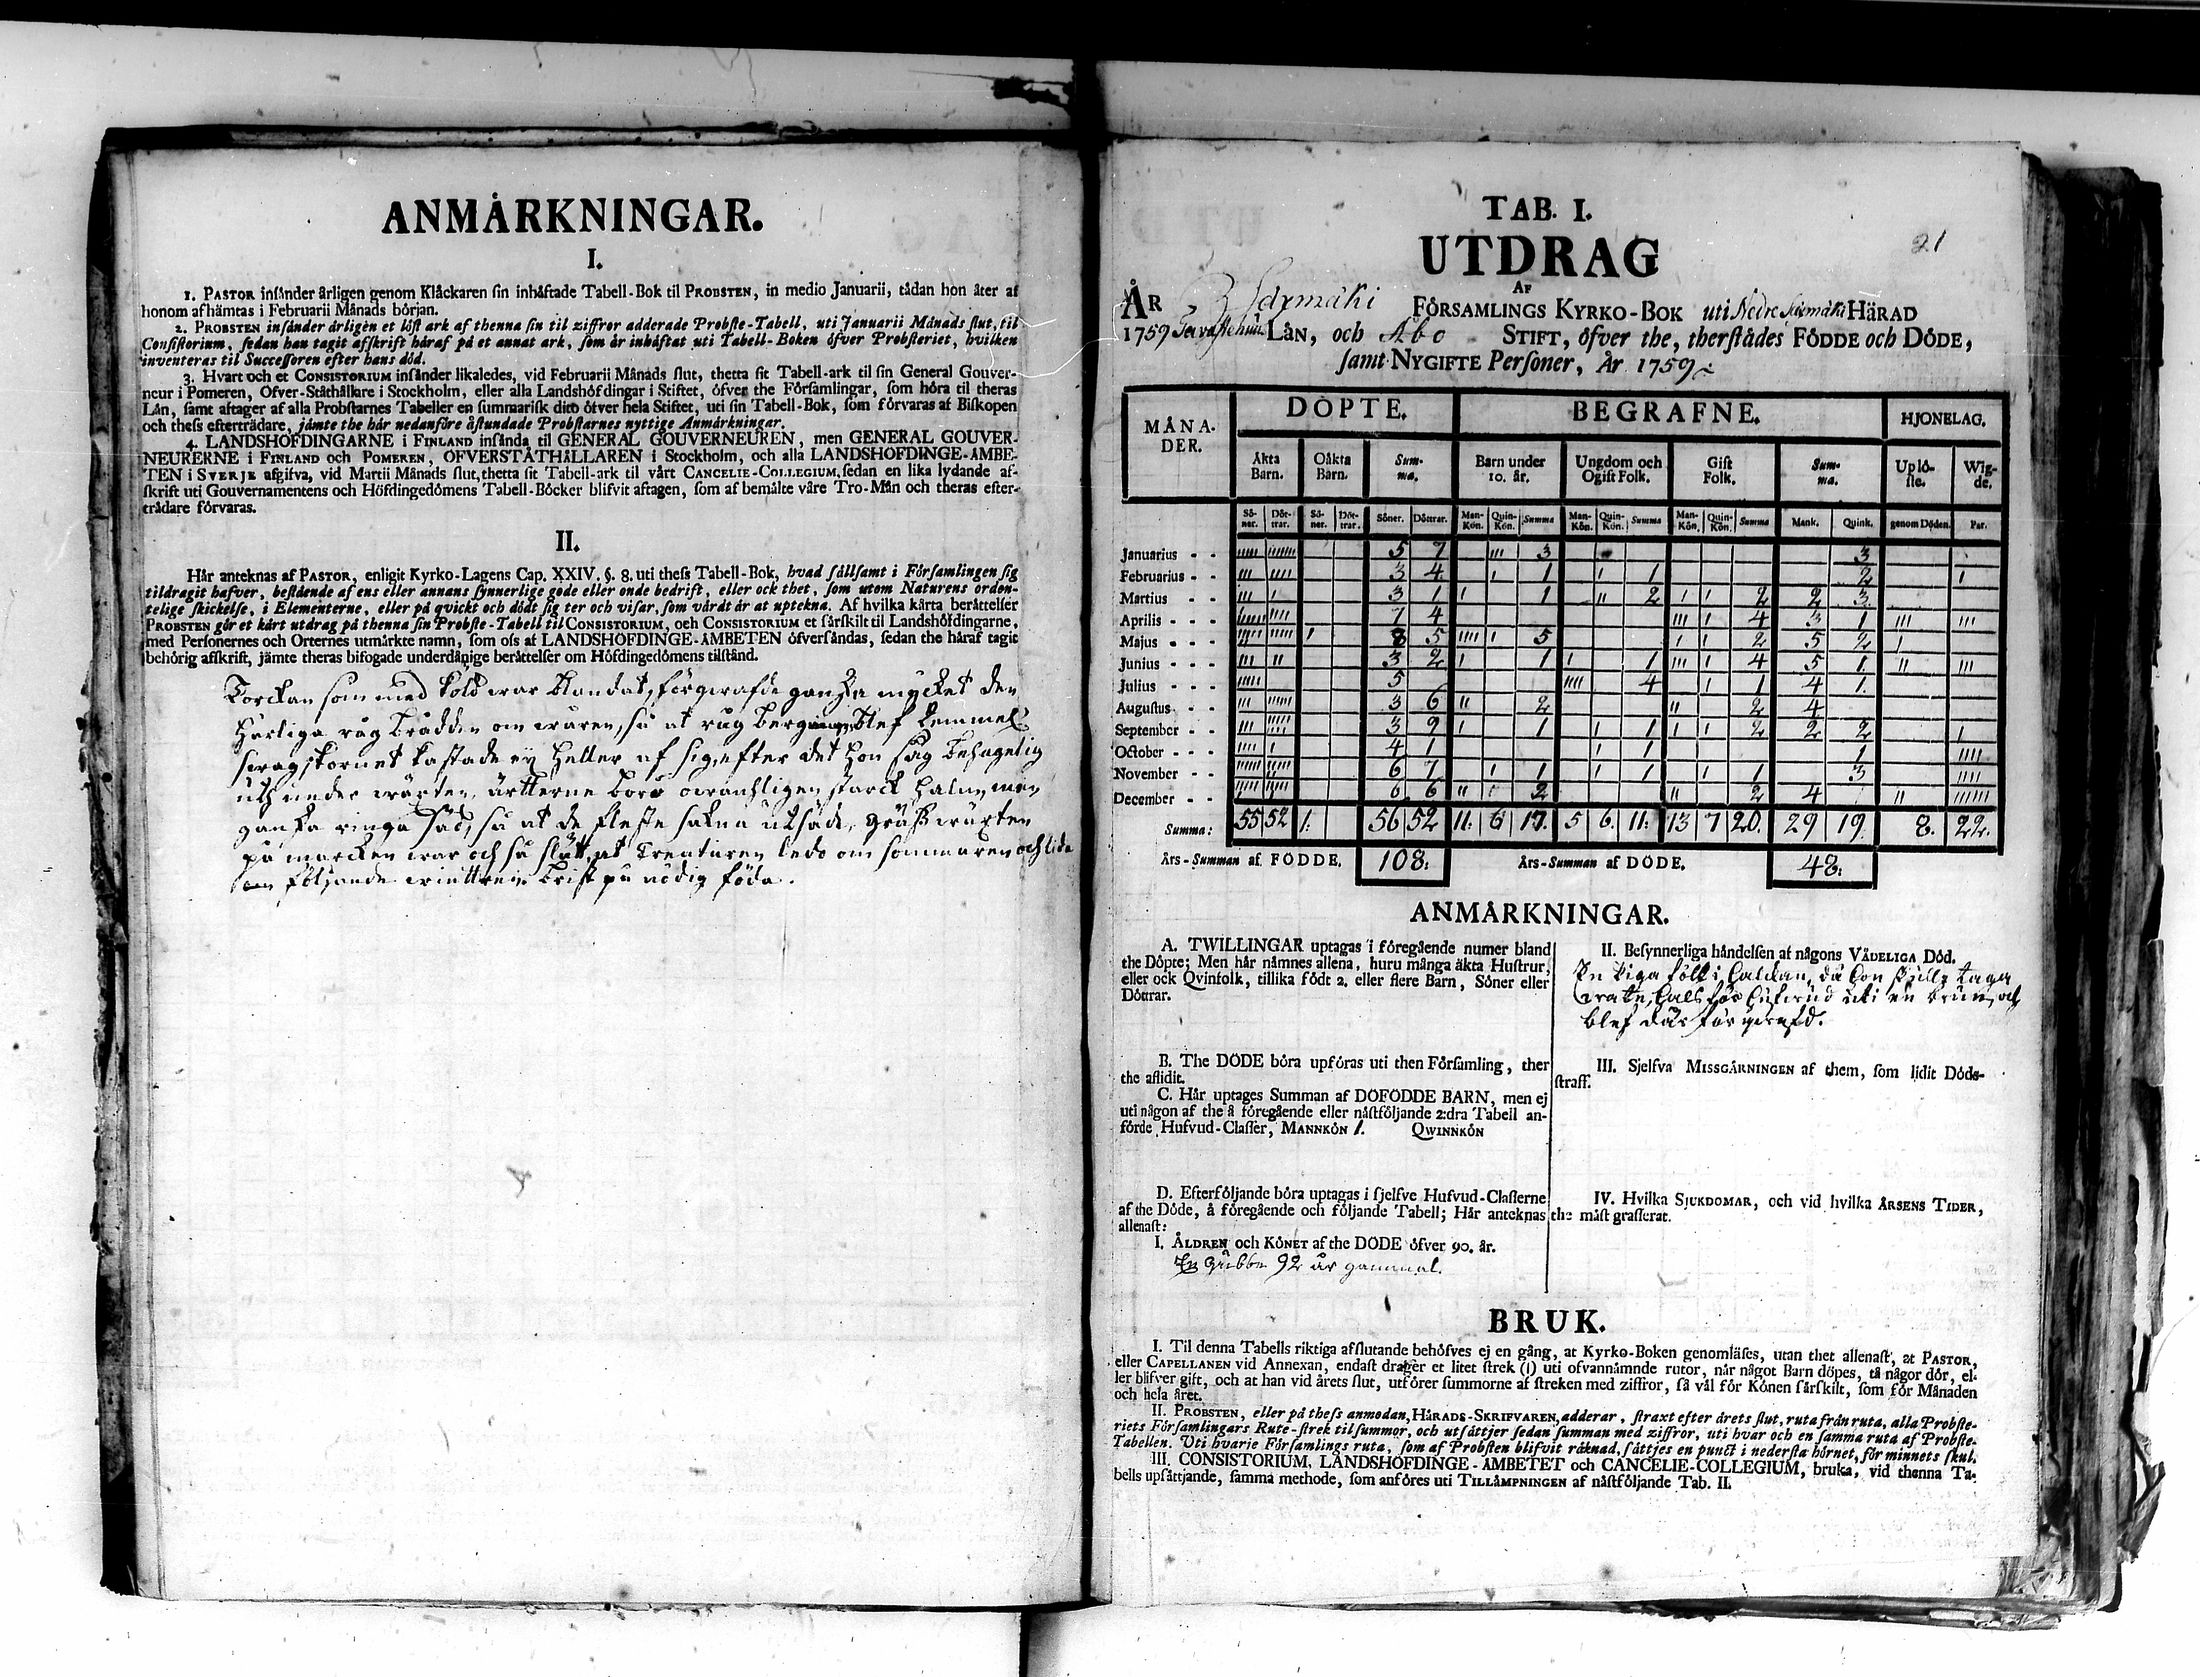 ANMÅRKNINGAR.
I.
1. PASTOR insånder årligen genom Klåckaren sin inhåftade Tabell-Bok til PROBSTEN, in medio Januarii, tådan hon åter af
honom afhåmtas i Februarii Månads början.
2. PROBSTEN insånder årligen et löst ark af thenna sin til ziffror adderade Probste-Tabell, uti Januarii Månads slut, til
Consistorium, sedan han tagit afskrift håraf på et annat ark, som år inhåftat uti Tabell-Boken öfver Probsteriet, hvilken
inventeras til Successoren efter hans död.
3. Hvart och et CONSISTORIUM insånder likaledes, vid Februarii Månads slut, thetta sit Tabell-ark til sin General Gouver-
neur i Pomeren, Öfver-Ståthållare i Stockholm, eller alla Landshöfdingar i Stiftet, öfver the Församlingar, som höra til theras
Lån, samt aftager af alla Probstarnes Tabeller en summarisk dito öfver hela Stiftet, uti sin Tabell-Bok, som förvaras af Biskopen
och thess efterträdare, jämte the hår nedanföre åstundade Probstarnes nyttige Anmårkningar.
4. LANDSHÖFDINGARNE i FINLAND insånda til GENERAL GOUVERNEUREN, men GENERAL GOUVER-
NEURERNE i FINLAND och POMEREN, ÖFVERSTÅTHÅLLAREN i Stockholm, och alla LANDSHÖFDINGE-ÅMBE-
TEN i SVERJE afgifva, vid Martii Månads slut, thetta sit Tabell-ark til vårt CANCELIE-COLLEGIUM, sedan en lika lydande af-
skrift uti Gouvernamentens och Höfdingedömens Tabell-Böcker blifvit aftagen, som af bemålte våre Tro-Mån och theras efter-
trådare förvaras.
II.
Hår anteknas af PASTOR, enligit Kyrko-Lagens Cap. XXIV. §. 8. uti thess Tabell-Bok, hvad sållsamt i Församlingen sig
tildragit hafver, bestående af ens eller annans synnerlige gode eller onde bedrift, eller ock thet, som utom Naturens orden-
telige skickelse, i Elementerne, eller på qvickt och dödt sig ter och visar, som vårdt år at uptekna. Af hvilka kårta beråttelser
PROBSTEN gör et kårt utdrag på thenna sin Probste-Tabell til CONSISTORIUM, och CONSISTORIUM et sårskilt til Landshöfdingarne,
med Personernes och Orternes utmårkte namn, som oss af LANDSHÖFDINGE-ÅMBETEN öfversåndas, sedan the håraf tagit
behörig afskrift, jämte theras bifogade underdånige beråttelser om Höfdingedömens tilstånd.
Torckan som med köld war blandat, förderfvade ganska mycket den
härliga råg brådden om wåren, så at råg bergningen blef
kornet kastade ej heller af sig, efter det hon såg behagelig
uth under wäxten, ärtterne boro owanligen starck halm, men
ganska ringa säd, så at de flesta sakna utsäde, gräswäxten
på marcken war och så slätt, at Creaturen ledo om sommaren och lida
följande wintteren brist på nödig föda.
21
TAB. I.
UTDRAG
AF
ÅR Säxmäki FÖRSAMLINGS KYRKO-BOK uti Nedre Säxmäki HÄRAD
1759 Tavastehus LÅN, och Åbo STIFT, öfver the, therstådes FÖDDE och DÖDE,
samt NYGIFTE Personer, År 1759
MÅNADER. DÖPTE. BEGRAFNE. HJONELAG.
Äkta Barn. Oåkta Barn. Summa. Barn under 10. år. Ungdom och Ogift Folk. Gift Folk. Summa. Uplöste. Wigde.
Söner. Döttrar. Söner. Döttrar. Söner. Döttrar. Man-Kön. Quin-Kön. Summa Man-Kön. Quin-Kön. Summa Man-Kön. Quin-Kön. Summa Mank. Quink. genom Döden. Par.
Januarius - - ııııı ııııııı 5 7 ııı 3 3
Februarius - - ııı ıııı 3 4 ı 1 ı 1 2 ı
Martius - - ııı ı 3 1 ı 1 ıı 2 ı ı 2 2 3
Aprilis - - - ııııııı ıııı 7 4 ııı ı 4 3 1 ııı ııı
Majus - - - ııııııı ııııı ı 8 5 ıııı ı 5 ı ı 2 5 2 ı
Junius - - - ııı ıı 3 2 ı 1 ı 1 ııı ı 4 5 1 ıı ııı
Julius - - - ııııı 5 ıııı 4 ı 1 4 1
Augustus - - ııı ıııııı 3 6 ıı 2 ıı 2 4
September - - ııı ııııııııı 3 9 ı 1 ı 1 ı ı 2 2 2 ı
October - - - ıııı ı 4 1 ı 1 1 ıııı
November - - ıııııı ııııııı 6 7 ı 1 ı 1 ı 1 3 ıııı
December - - ıııııı ıııııı 6 6 ıı 2 ıı 2 4 ıı ıııııı
Summa: 55 52 1. 56 52 11. 6 17. 5 6. 11. 13 7 20. 29 19. 8. 22.
Års-Summan af FÖDDE. 108. Års-Summan af DÖDE. 48.
ANMÅRKNINGAR.
A. TWILLINGAR uptagas i föregående numer bland
the Döpte; Men hår nåmnes allena, huru många åkta Hustrur,
eller ock Qvinfolk, tillika födt 2. eller flere Barn, Söner eller
Döttrar.
B. The DÖDE böra upföras uti then Församling, ther
the aflidit.
C. Hår uptages Summan af DÖFÖDDE BARN, men ej
uti någon af the å föregående eller nåstföljande 2:dra Tabell an-
förde Hufvud-Classer, MANNKÖN 1. QWINNKÖN
D. Efterföljande böra uptagas i sjelfve Hufvud-Classerne
af the Döde, å föregående och följande Tabell; Hår anteknas
allenast:
I. ÅLDREN och KÖNET af the DÖDE öfver 90. år.
En Gubbe 92 år gammal.
II. Besynnerliga håndelsen af någons VÅDELIGA Död.
En Piga föll i kalckan, då hon skulle taga
uti en brun, och
blef där
III. Sjelfva MISSGÅRNINGEN af them, som lidit Döds-
straff.
IV. Hvilka SJUKDOMAR, och vid hvilka ÅRSENS TIDER,
the måst grasserat.
BRUK.
I. Til denna Tabells riktiga afslutande behöfves ej en gång, at Kyrko-Boken genomläses, utan thet allenast, at PASTOR,
eller CAPELLANEN vid Annexan, endast drager et litet strek (ı) uti ofvannåmnde rutor, når något Barn döpes, tå någor dör, el-
ler blifver gift, och at han vid årets slut, utförer summorne af streken med ziffror, så vål för Könen sårskilt, som för Månaden
och hela året.
II. PROBSTEN, eller på thess anmodan, HÅRADS-SKRIFVAREN, adderar, straxt efter årets slut, ruta från ruta, alla Probste-
riets Församlingars Rute-strek til summor, och utsåttjer sedan summan med ziffror, uti hvar och en samma ruta af Probste-
Tabellen. Uti hvarje Församlings ruta, som af Probsten blifvit råknad, såttjes en punct i nedersta hörnet, för minnets skul.
III. CONSISTORIUM, LANDSHÖFDINGE-ÅMBETET och CANCELIE-COLLEGIUM, bruka, vid thenna Ta-
bells upsåttjande, samma methode, som anföres uti TILLÅMPNINGEN af nåstföljande Tab. II.